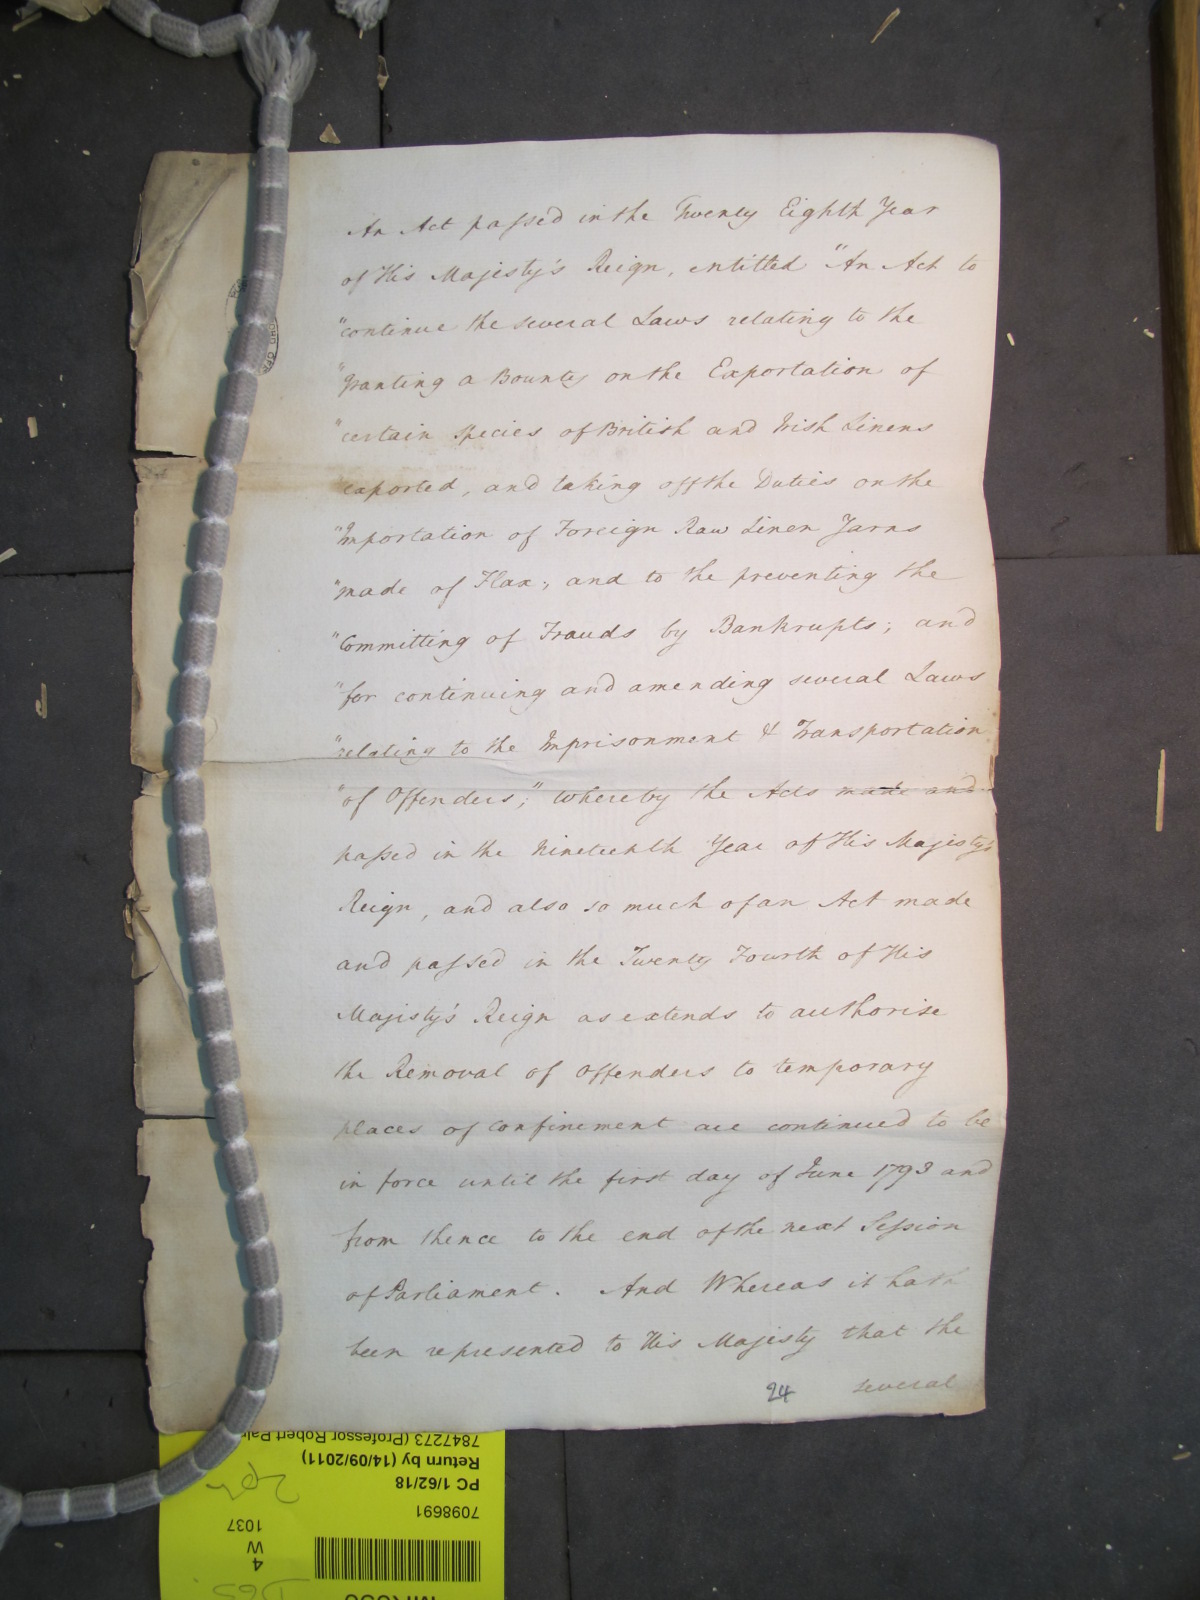 An Act passed in the Twenty Eighth Year
of His Majesty's Reign, entitled "An Act to
"continue the several Laws relating to the
"granting a Bounty on the Exportation of
"certain Species of British and Irish Linens
exported, and taking off the Duties on the
"Importation of Foreign Raw Linen Yarns
"made of Flax; and to the preventing the
"Committing of Frauds by Bankrupts; and
"for continuing and amending several Laws
"relating to the Imprisonment & Transportation
"of Offenders;" whereby the Acts made and
passed in the Nineteenth Year of His Majesty's
Reign, and also so much of an Act made
and passed in the Twenty Fourth of His
Majesty's Reign as extends to authorise
the Removal of Offenders to temporary
places of Confinement are continued to be
in force until the first day of June 1793 and
from thence to the end of the next Session
of Parliament. And Whereas it hath
been represented to His Majesty that the
24 several
7847273 (Professor Robert
Return by (14/09/2011)
PC 1/62/18
7098691
1037
W
4